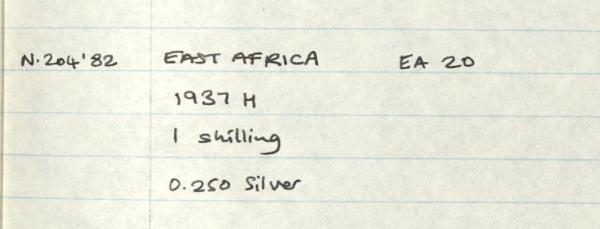 N.204'82 EAST AFRICA EA 20
1937 H
1 shilling
0.250 Silver